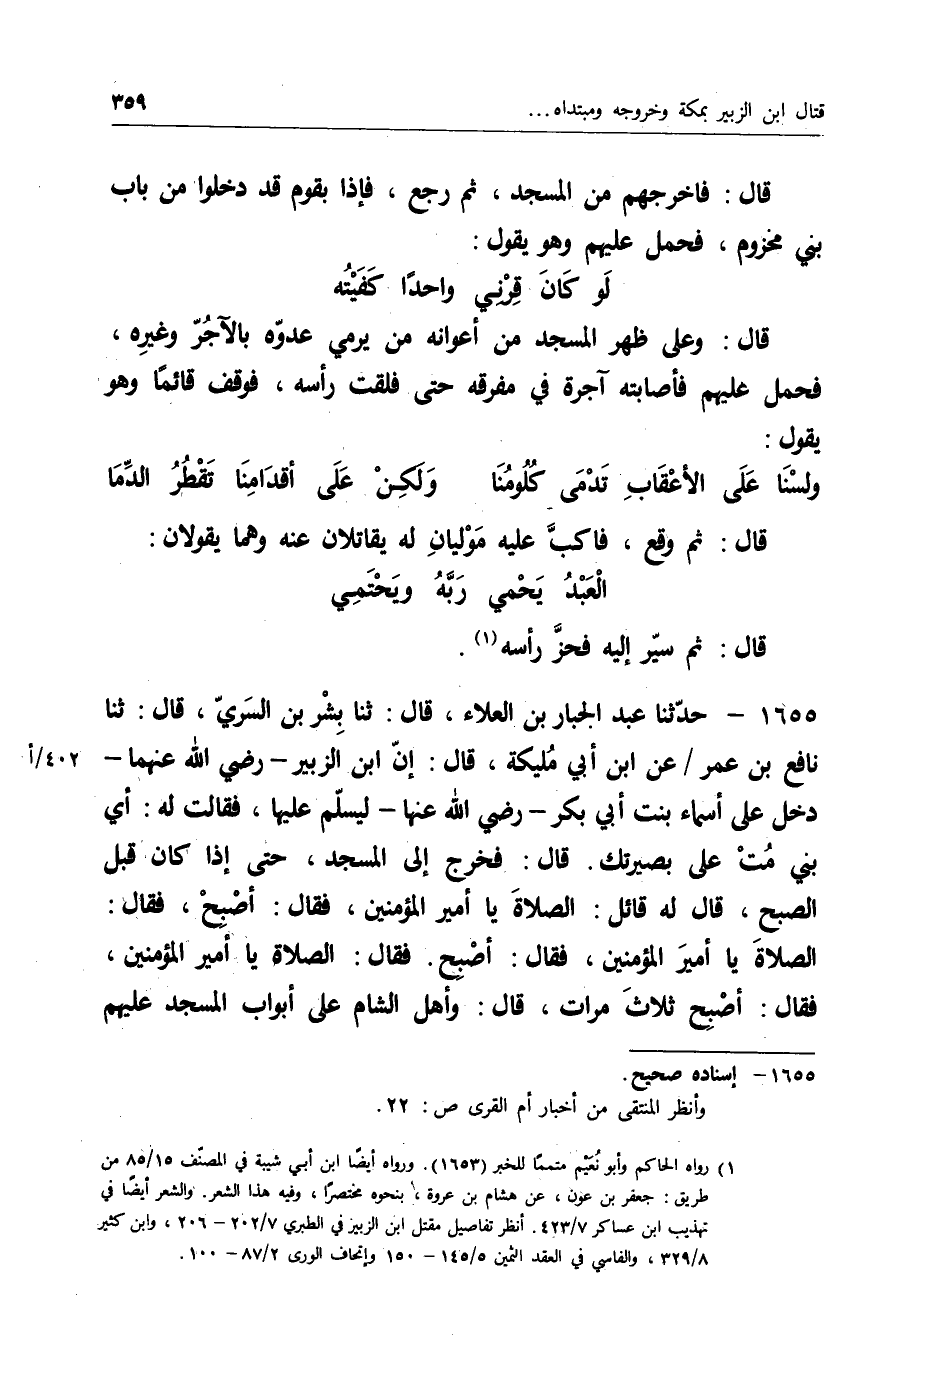 قتال ابن الزبير بمكة وخروجه ومبتداه... ٣٥٩
قال : فاخرجهم من المسجد ، ثم رجع ، فإذا بقوم قد دخلوا من باب
بني مخزوم ، فحمل عليهم وهو يقول :
لَو كَانَ قِرْنِي واحدًا كَفَيْتُه
قال : وعلى ظهر المسجد من أعوانه من يرمي عدوّه بالآجُرّ وغيرِه ،
فحمل عليهم فأصابته آجرة في مفرقه حتى فلقت رأسه ، فوقف قائمًا وهو
يقول :
ولسْنَا عَلَى الأعْقَابِ تَدْمَى كُلُومُنَا وَلَكِنْ عَلَى أقدَامِنَا تَقْطُرُ الدِّمَا
قال : ثم وقع ، فاكبَّ عليه مَوْليانِ له يقاتلان عنه وهما يقولان :
الْعَبْدُ يَحْمي رَبَّهُ ويَحْتَمِي
قال : ثم سيّر إليه فحزَّ رأسه(١) .
١٦٥٥ – حدّثنا عبد الجبار بن العلاء ، قال : ثنا بِشْر بن السَريّ ، قال : ثنا
نافع بن عمر / عن ابن أبي مُليكة ، قال : إنّ ابن الزبير – رضي الله عنهما – ٤٠٢/أ
دخل على أسماء بنت أبي بكر – رضي الله عنها – ليسلّم عليها ، فقالت له : أي
بني مُتْ على بصيرتك. قال : فخرج إلى المسجد ، حتى إذا كان قبل
الصبح ، قال له قائل : الصلاةَ يا أمير المؤمنين ، فقال : أصْبِحْ ، فقال :
الصلاةَ يا أميرَ المؤمنين ، فقال : أصْبِح. فقال : الصلاة يا أمير المؤمنين ،
فقال : أصْبِح ثلاثَ مرات ، قال : وأهل الشام على أبواب المسجد عليهم
١٦٥٥– إسناده صحيح.
وأنظر المنتقى من أخبار أم القرى ص : ٢٢.
١) رواه الحاكم وأبو نُعَيْم متممًا للخبر (١٦٥٣). ورواه أيضًا ابن أبي شيبة في المصنّف ٨٥/١٥ من
طريق : جعفر بن عون ، عن هشام بن عروة ، بنحوه مختصرًا ، وفيه هذا الشعر. والشعر أيضًا في
تهذيب ابن عساكر ٤٢٣/٧. أنظر تفاصيل مقتل ابن الزبير في الطبري ٢٠٢/٧ – ٢٠٦ ، وابن كثير
٣٢٩/٨ ، والفاسي في العقد الثمين ١٤٥/٥ – ١٥٠ وإتحاف الورى ٨٧/٢ – ١٠٠.